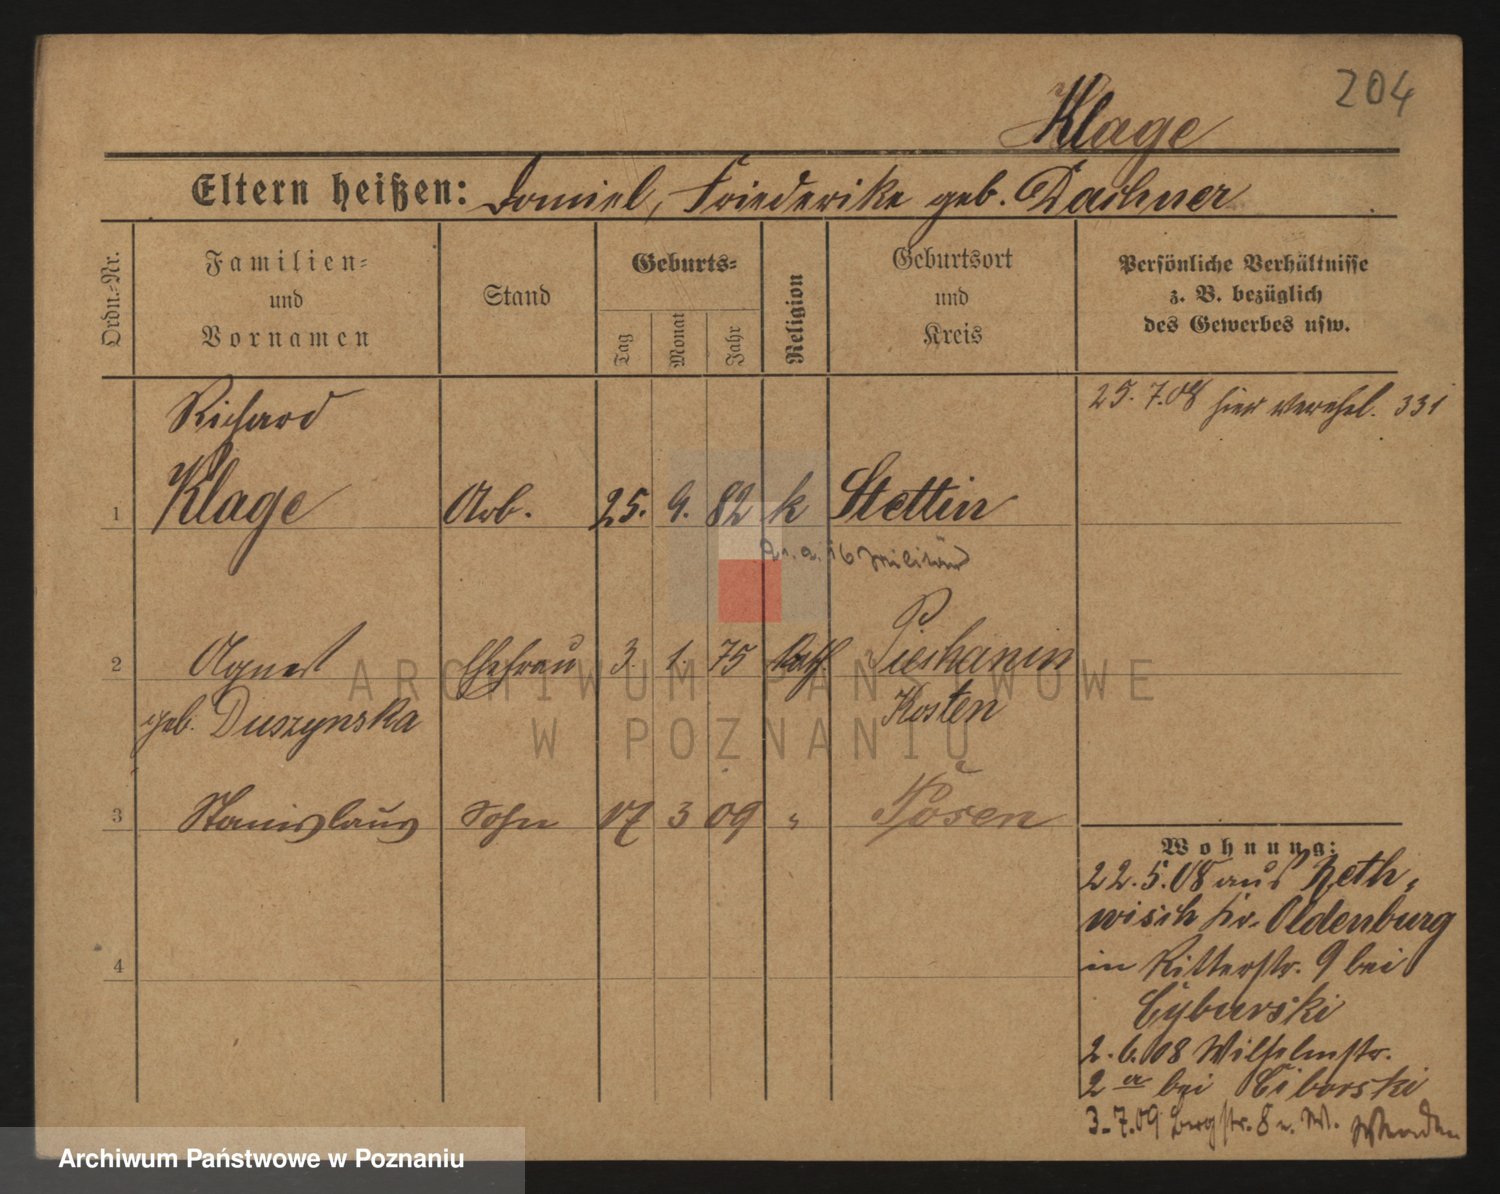 204
Klage
Eltern heißen: Daniel, Friederike geb. Dachner
Ordn.-Nr.
Familien-
und
Vornamen
Stand
Geburts-
Tag
Monat
Jahr
Religion
Geburtsort
und
Kreis
Persönliche Verhältnisse
z. B. bezüglich
des Gewerbes usw.
25.7.08 hier verehel. 331
Richard
1 Klage Arb. 25. 9. 82 k Stettin
21.9.16 Militär
2 Agnes Ehefrau 3. 1. 75 kath. Pierhanin
geb. Duszynska Kosten
3 Stanislaus Sohn 17 3 09 " Posen
4
Wohnung:
22.5.08 aus Reth-
wisch Kr. Oldenburg
in Ritterstr. 9 bei
Cyburski
2.6.08 Wilhelmstr.
2a bei Ciborski
3.7.09 Bergstr. 8
ARCHIWUM PAŃSTWOWE
W POZNANIU
Archiwum Państwowe w Poznaniu